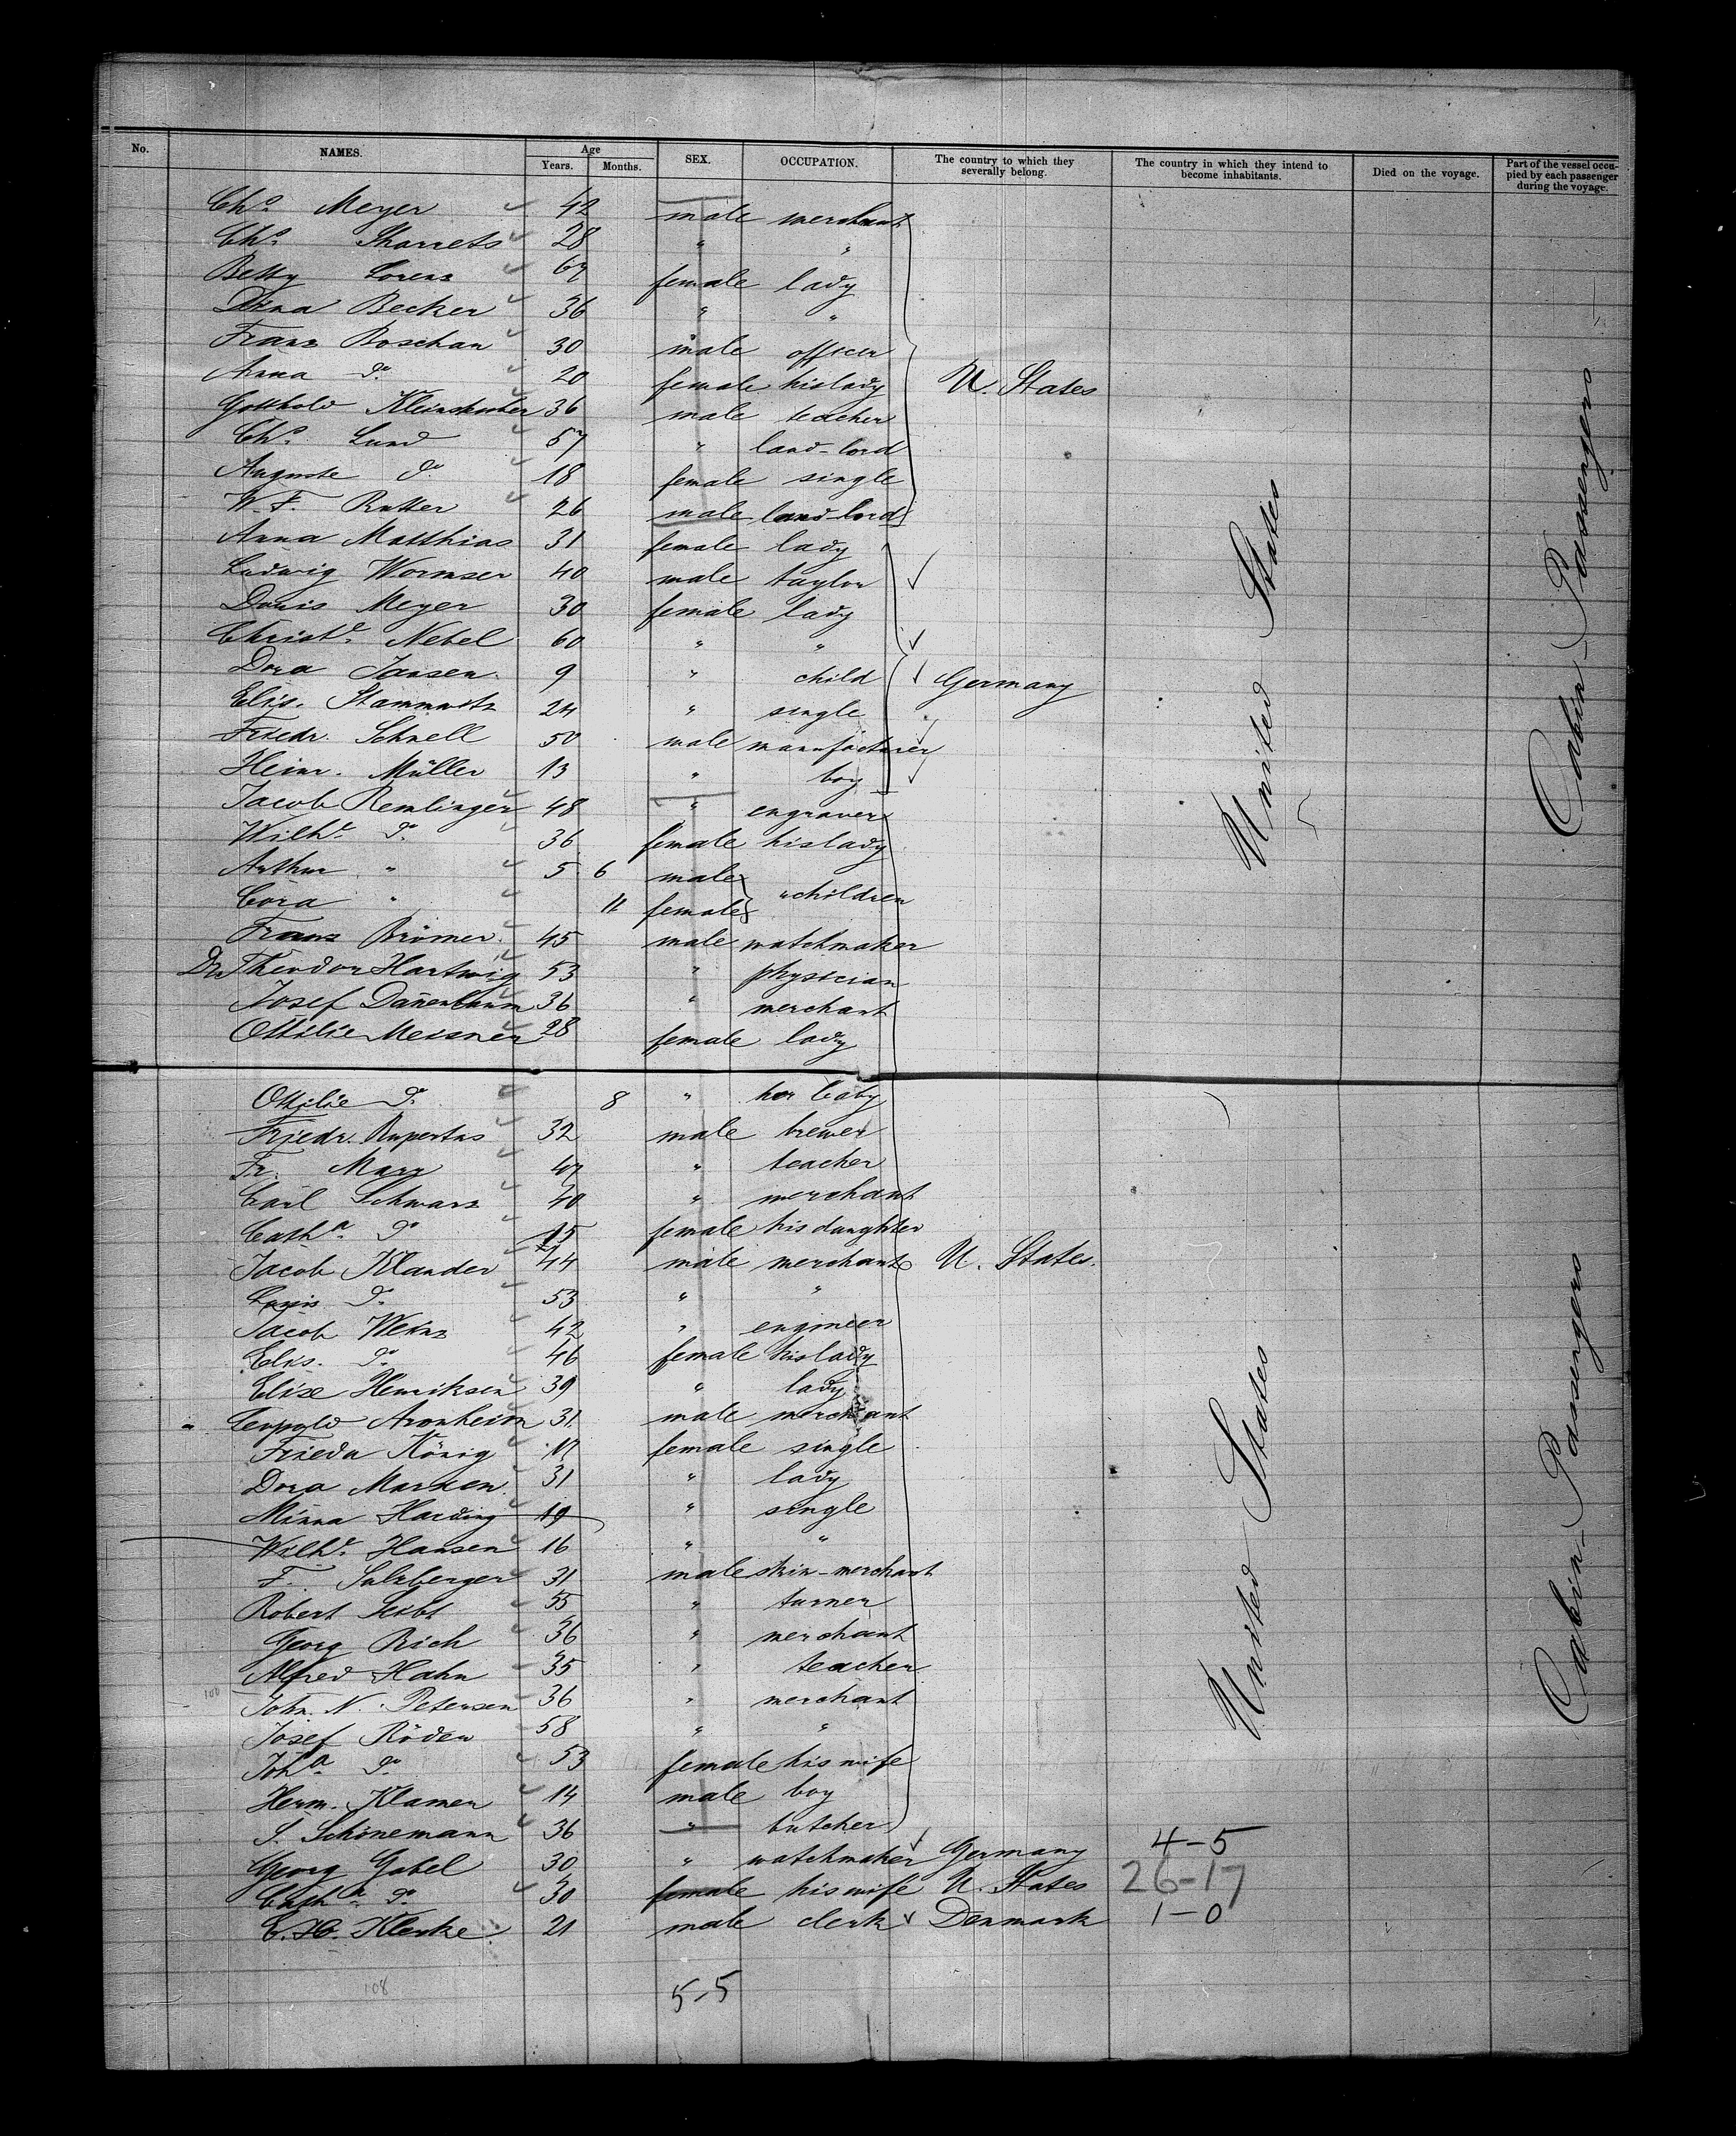 No. NAMES. Age Years. Months. SEX. OCCUPATION. The country to which they severally belong. The country in which they intend to become inhabitants. Died on the voyage. Part of the vessel occupied by each passenger during the voyage.
Chs. Meyer 42 male merchant
Chs. Sharrets 28 " "
Betty Lorenz 67 female lady
Dina Becker 36 " "
Franz Boschan 30 male officer
Anna do. 20 female his lady U. States
Gotthold 36 male teacher
Chs. Lund 57 " land-lord
Auguste do. 18 female single
W. F. Rutter 26 male land-lord
Anna Matthias 31 female lady
Ludwig Wormser 40 male taylor
Doris Meyer 30 female lady
Christe. Nebel 60 " "
Dora Jansen 9 " child Germany
Elis. Stammwitz 24 " single
Friedr. Schnell 50 male manufacturer
Heinr. Müller 13 " boy
Jacob Remlinger 48 " engraver
Wilhe. do. 36 female his lady
Arthur " 5 6 male
Cora " 11 female "children
Franz Brömer 45 male watchmaker
Dr. Theodor Hartwig 53 " physician
Josef Danenbaum 36 " merchant
Ottilie Meisner 28 female lady
United States
Cabin-Passengers
Ottilie do. 8 " her baby
Friedr. Rupertus 32 male brewer
Fr. Marx 47 " teacher
Carl Schwarz 40 " merchant
Catha. do. 15 female his daughter
Jacob Klander 44 male merchant U. States.
Louis do. 53 " "
Jacob Weinz 42 " engineer
Elis. do. 46 female his lady
Elise Henriksen 39 " lady
Leopold Aronheim 31 male merchant
Frieda König 17 female single
Dora Marxen 31 " lady
Minna Harding 19 " single
Wilhe. Hansen 16 " "
F. Sulzberger 31 male skin-merchant
Robert Seibt 55 " turner
Georg Rich 36 " merchant
Alfred Hahn 35 " teacher
100 John. N. Petersen 36 " merchant
Josef Röder 58 " "
Joha. do. 53 female his wife
Herm. Klamer 14 male boy
S. Schönemann 36 " butcher
Georg Gabel 30 " watchmaker Germany 4-5
Catha. do. 30 female his wife U. States 26-17
C. H. Klerke 21 male clerk Denmark 1-0
United States
Cabin-Passengers
108
5-5